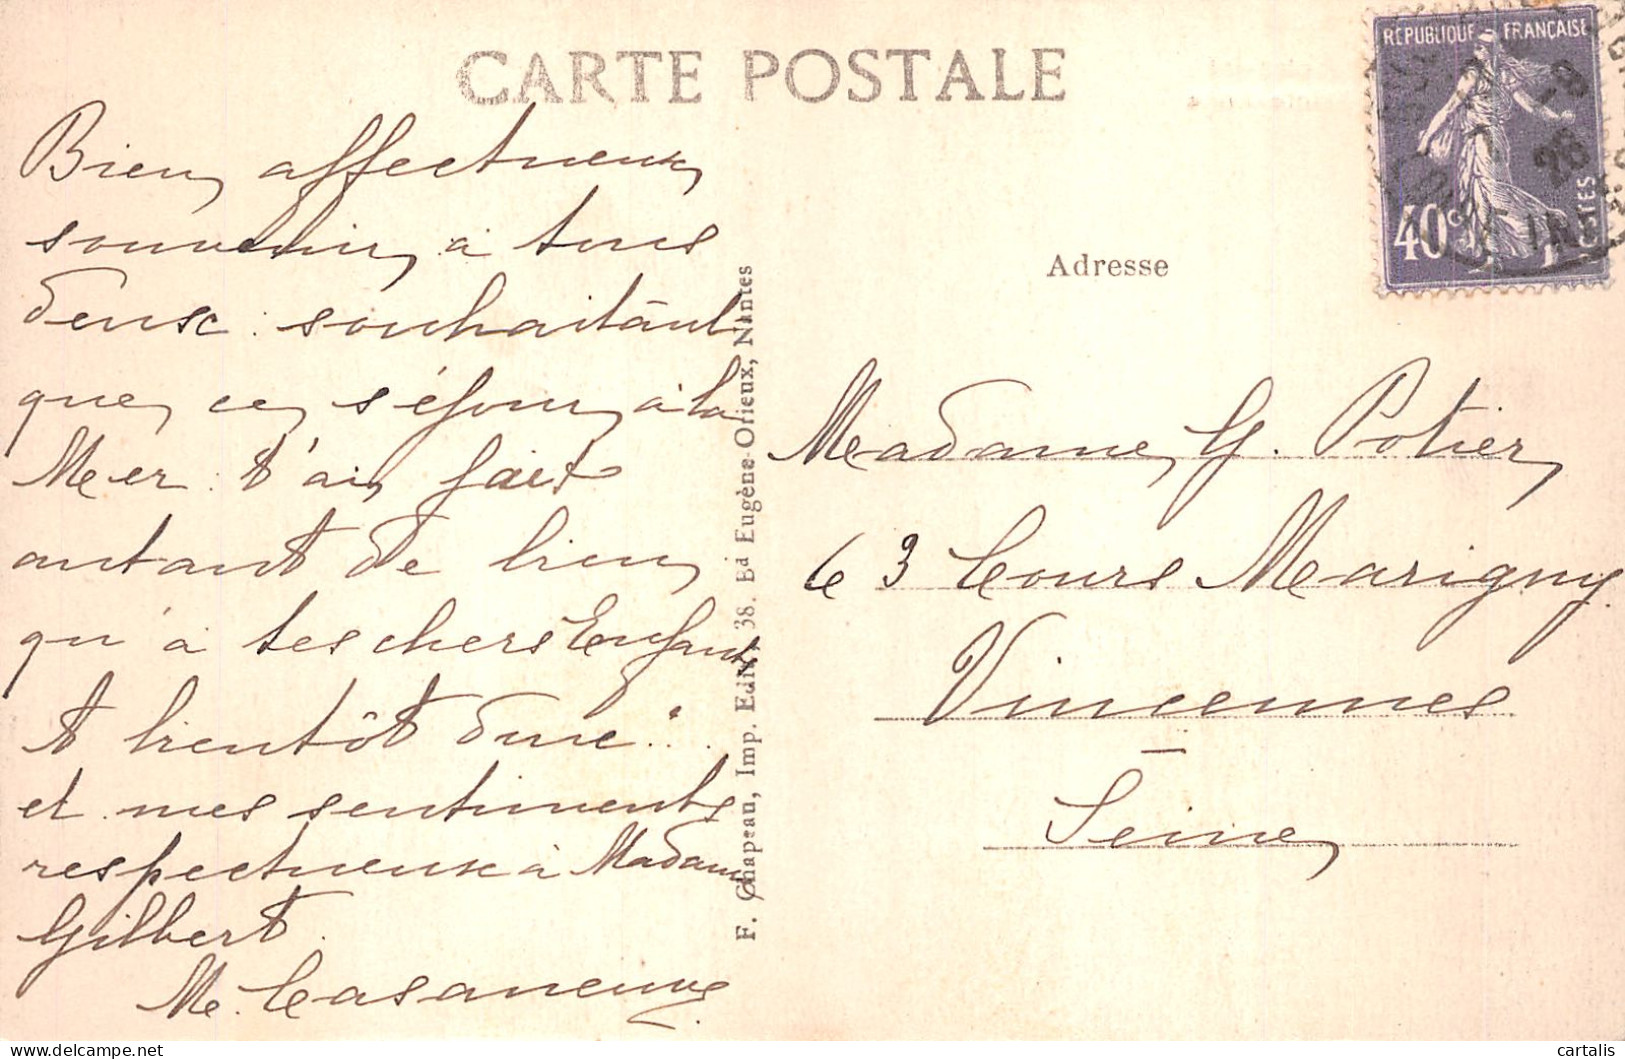 CARTE POSTALE
RÉPUBLIQUE FRANÇAISE
40c
POSTES
19
28
Bien affectueux
souvenir à tous
deux souhaitant
que ce séjour à la
Mer t'ai fait
autant de bien
qu'à tes chers Enfants
A bientôt
et mes sentiments
respectueux à Madame
Gilbert.
M. Casaneuve
F. Chapeau, Imp. Edit., 38. Bd Eugène-Orieux, Nantes
Adresse
Madame G. Potier
63 Cours Marigny
Vincennes
Seine
cartalis